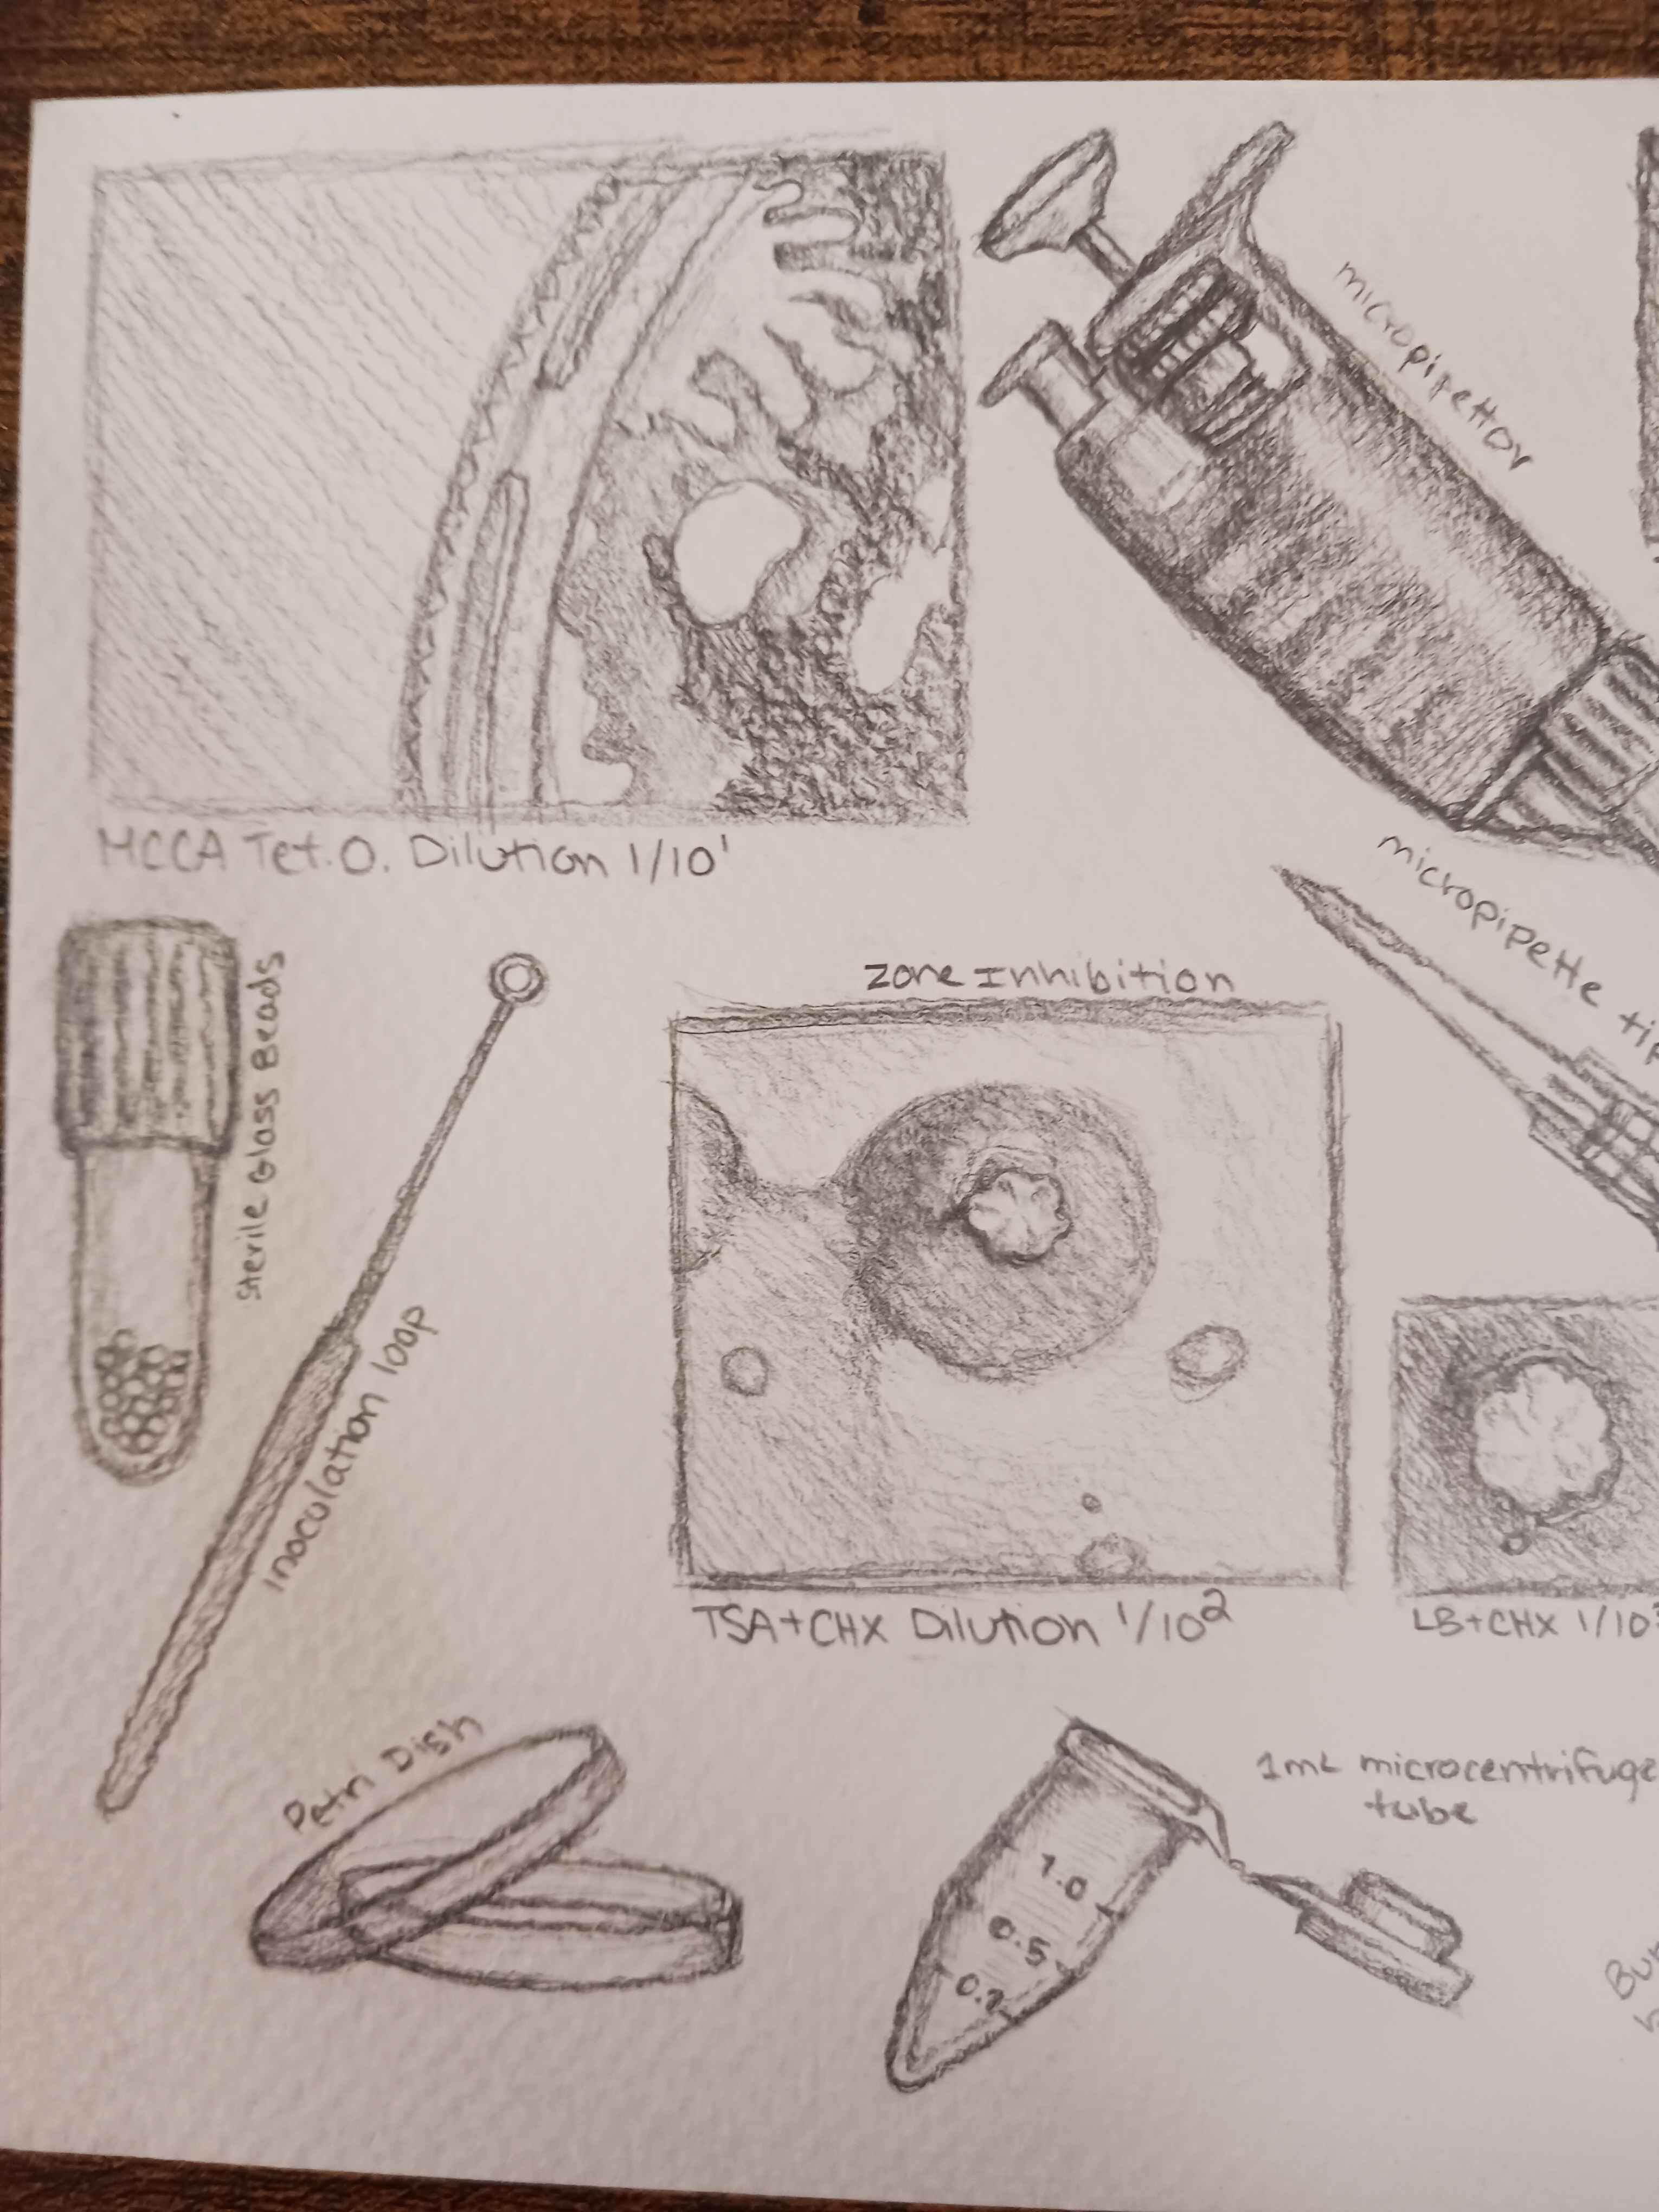 micropipettor
MCCA Tet.O. Dilution 1/10¹
micropipette tip
Sterile Glass Beads
inoculation loop
Zone Inhibition
TSA+CHX Dilution 1/10²
LB+CHX 1/10
Petri Dish
1mL microcentrifuge
tube
1.0
0.5